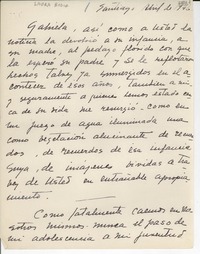 Santiago, Abril 5
Gabriela, así como a Usted la
noticia le devolvió a su infancia, a
su madre, al pedazo florido con que
la esperó su padre y se le repletaron
hechos tales, ya sumergidos en el a
contecer de esos años, también a mi
y seguramente a quienes hemos estado cer
ca de su vida me resurgió como en
un juego de agua iluminada una
como vegetación alucinante de recuer
dos, de recuerdos de su infancia
suya, de imágenes vividas a tra
vez de Usted en entrañable apropia
miento.
Como fatalmente caemos en no
sotros mismos, nunca el paso de
mi adolescencia a mi juventud